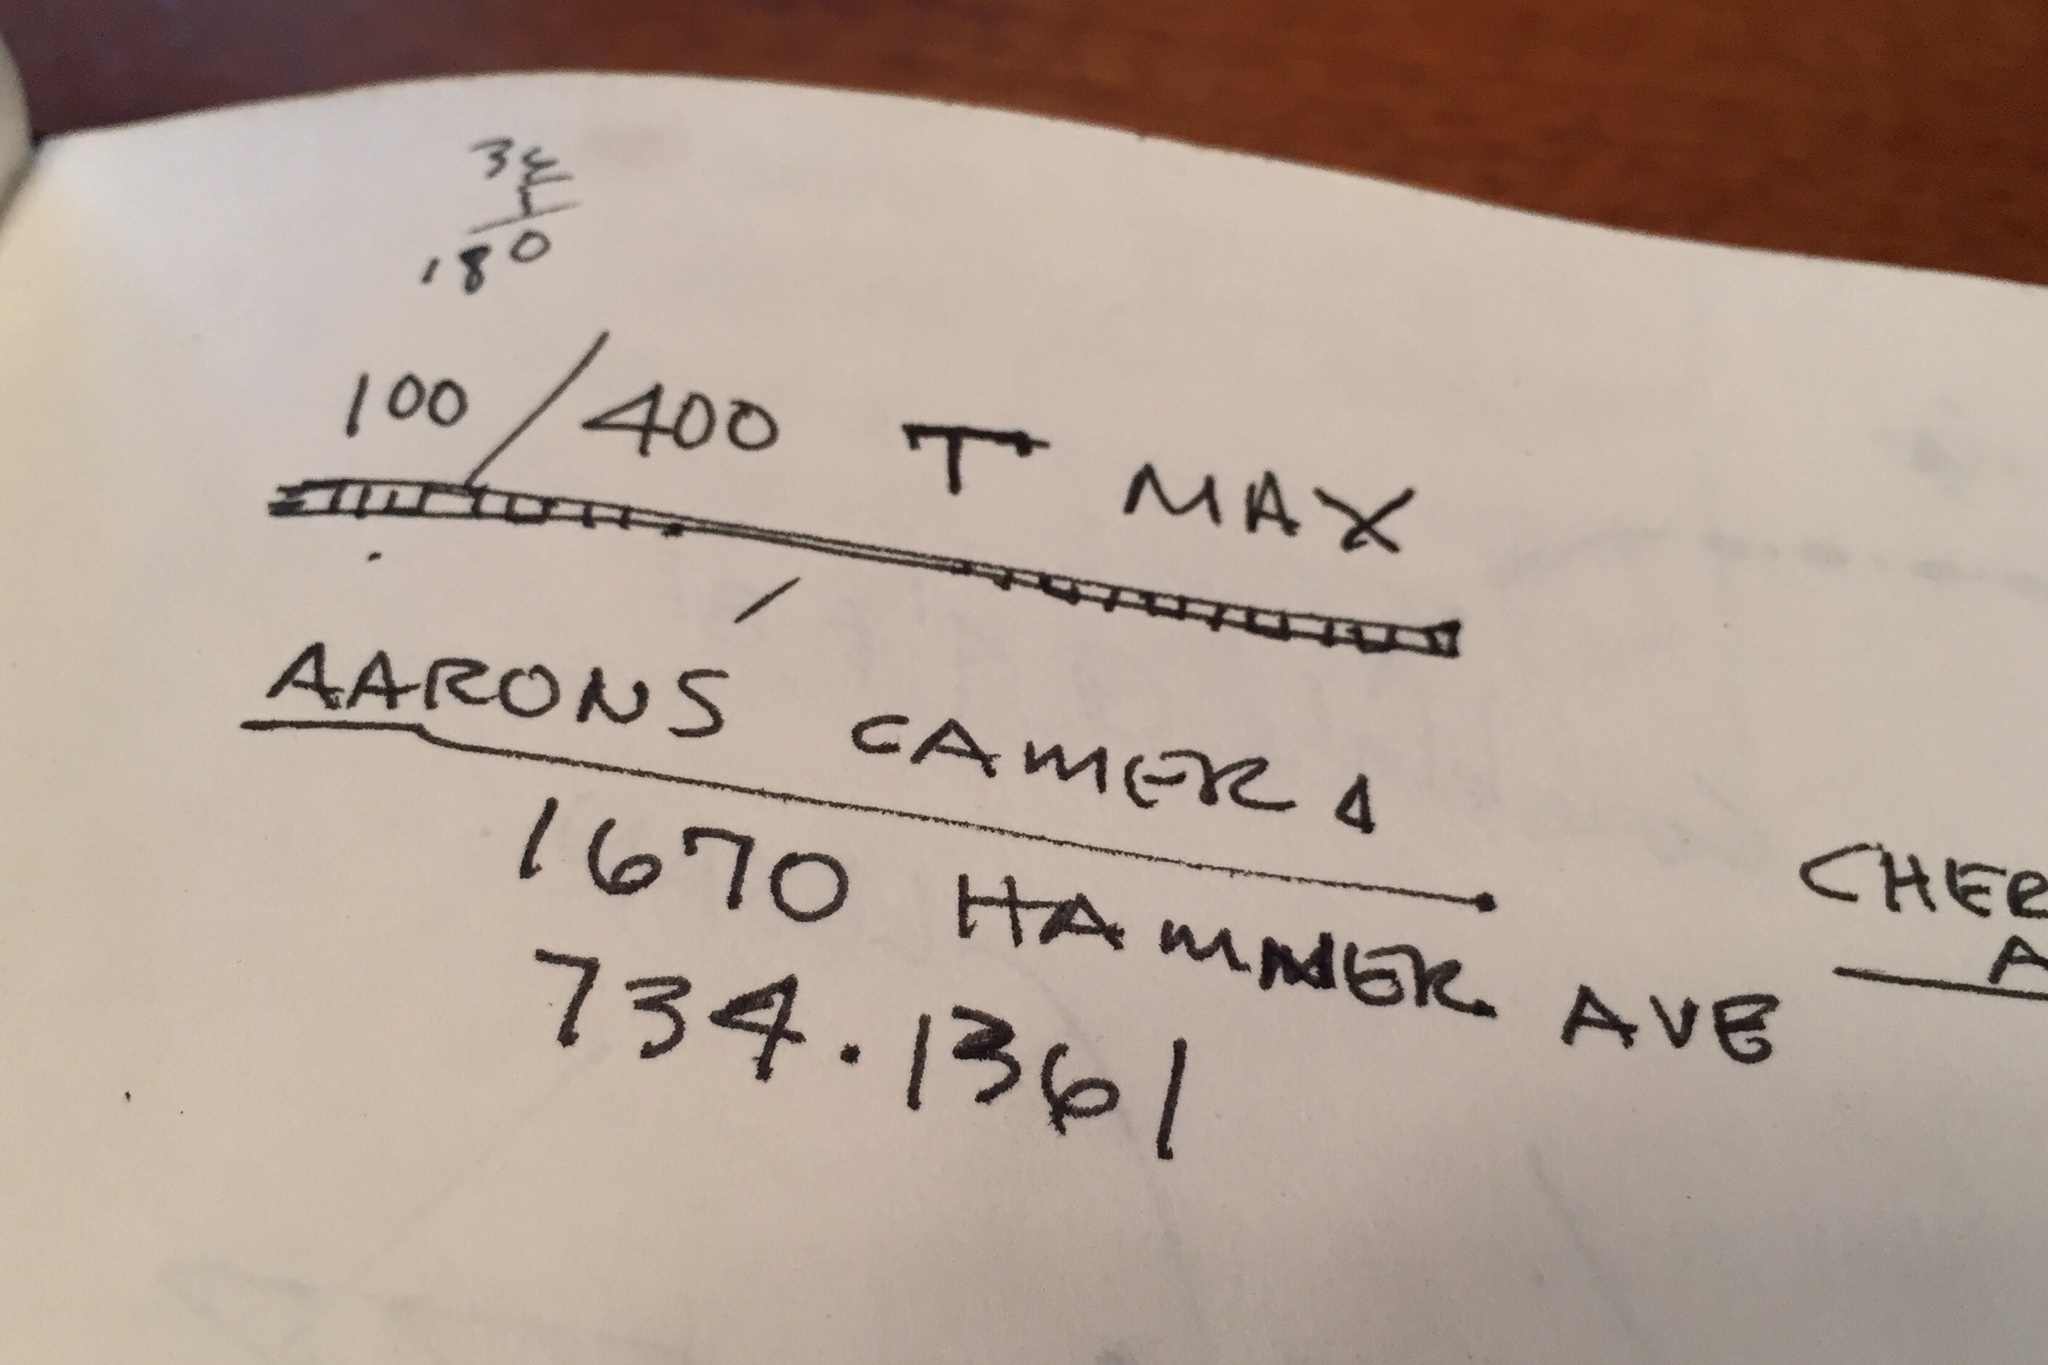 180
100/400 T MAX
AARONS CAMERA
1670 HAMNER AVE
734.1361
CHER
A